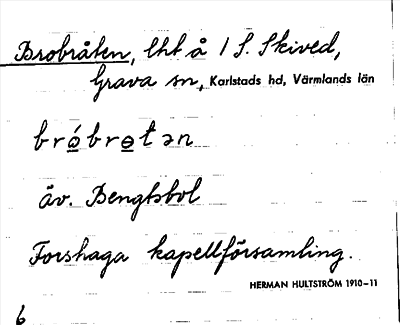 Brobråten, lht å 1 S. Skived,
Grava sn, Karlstads hd, Värmlands län
bróbrɵtən
äv. Bengtsbol
Forshaga kapellförsamling.
HERMAN HULTSTRÖM 1910–11
6